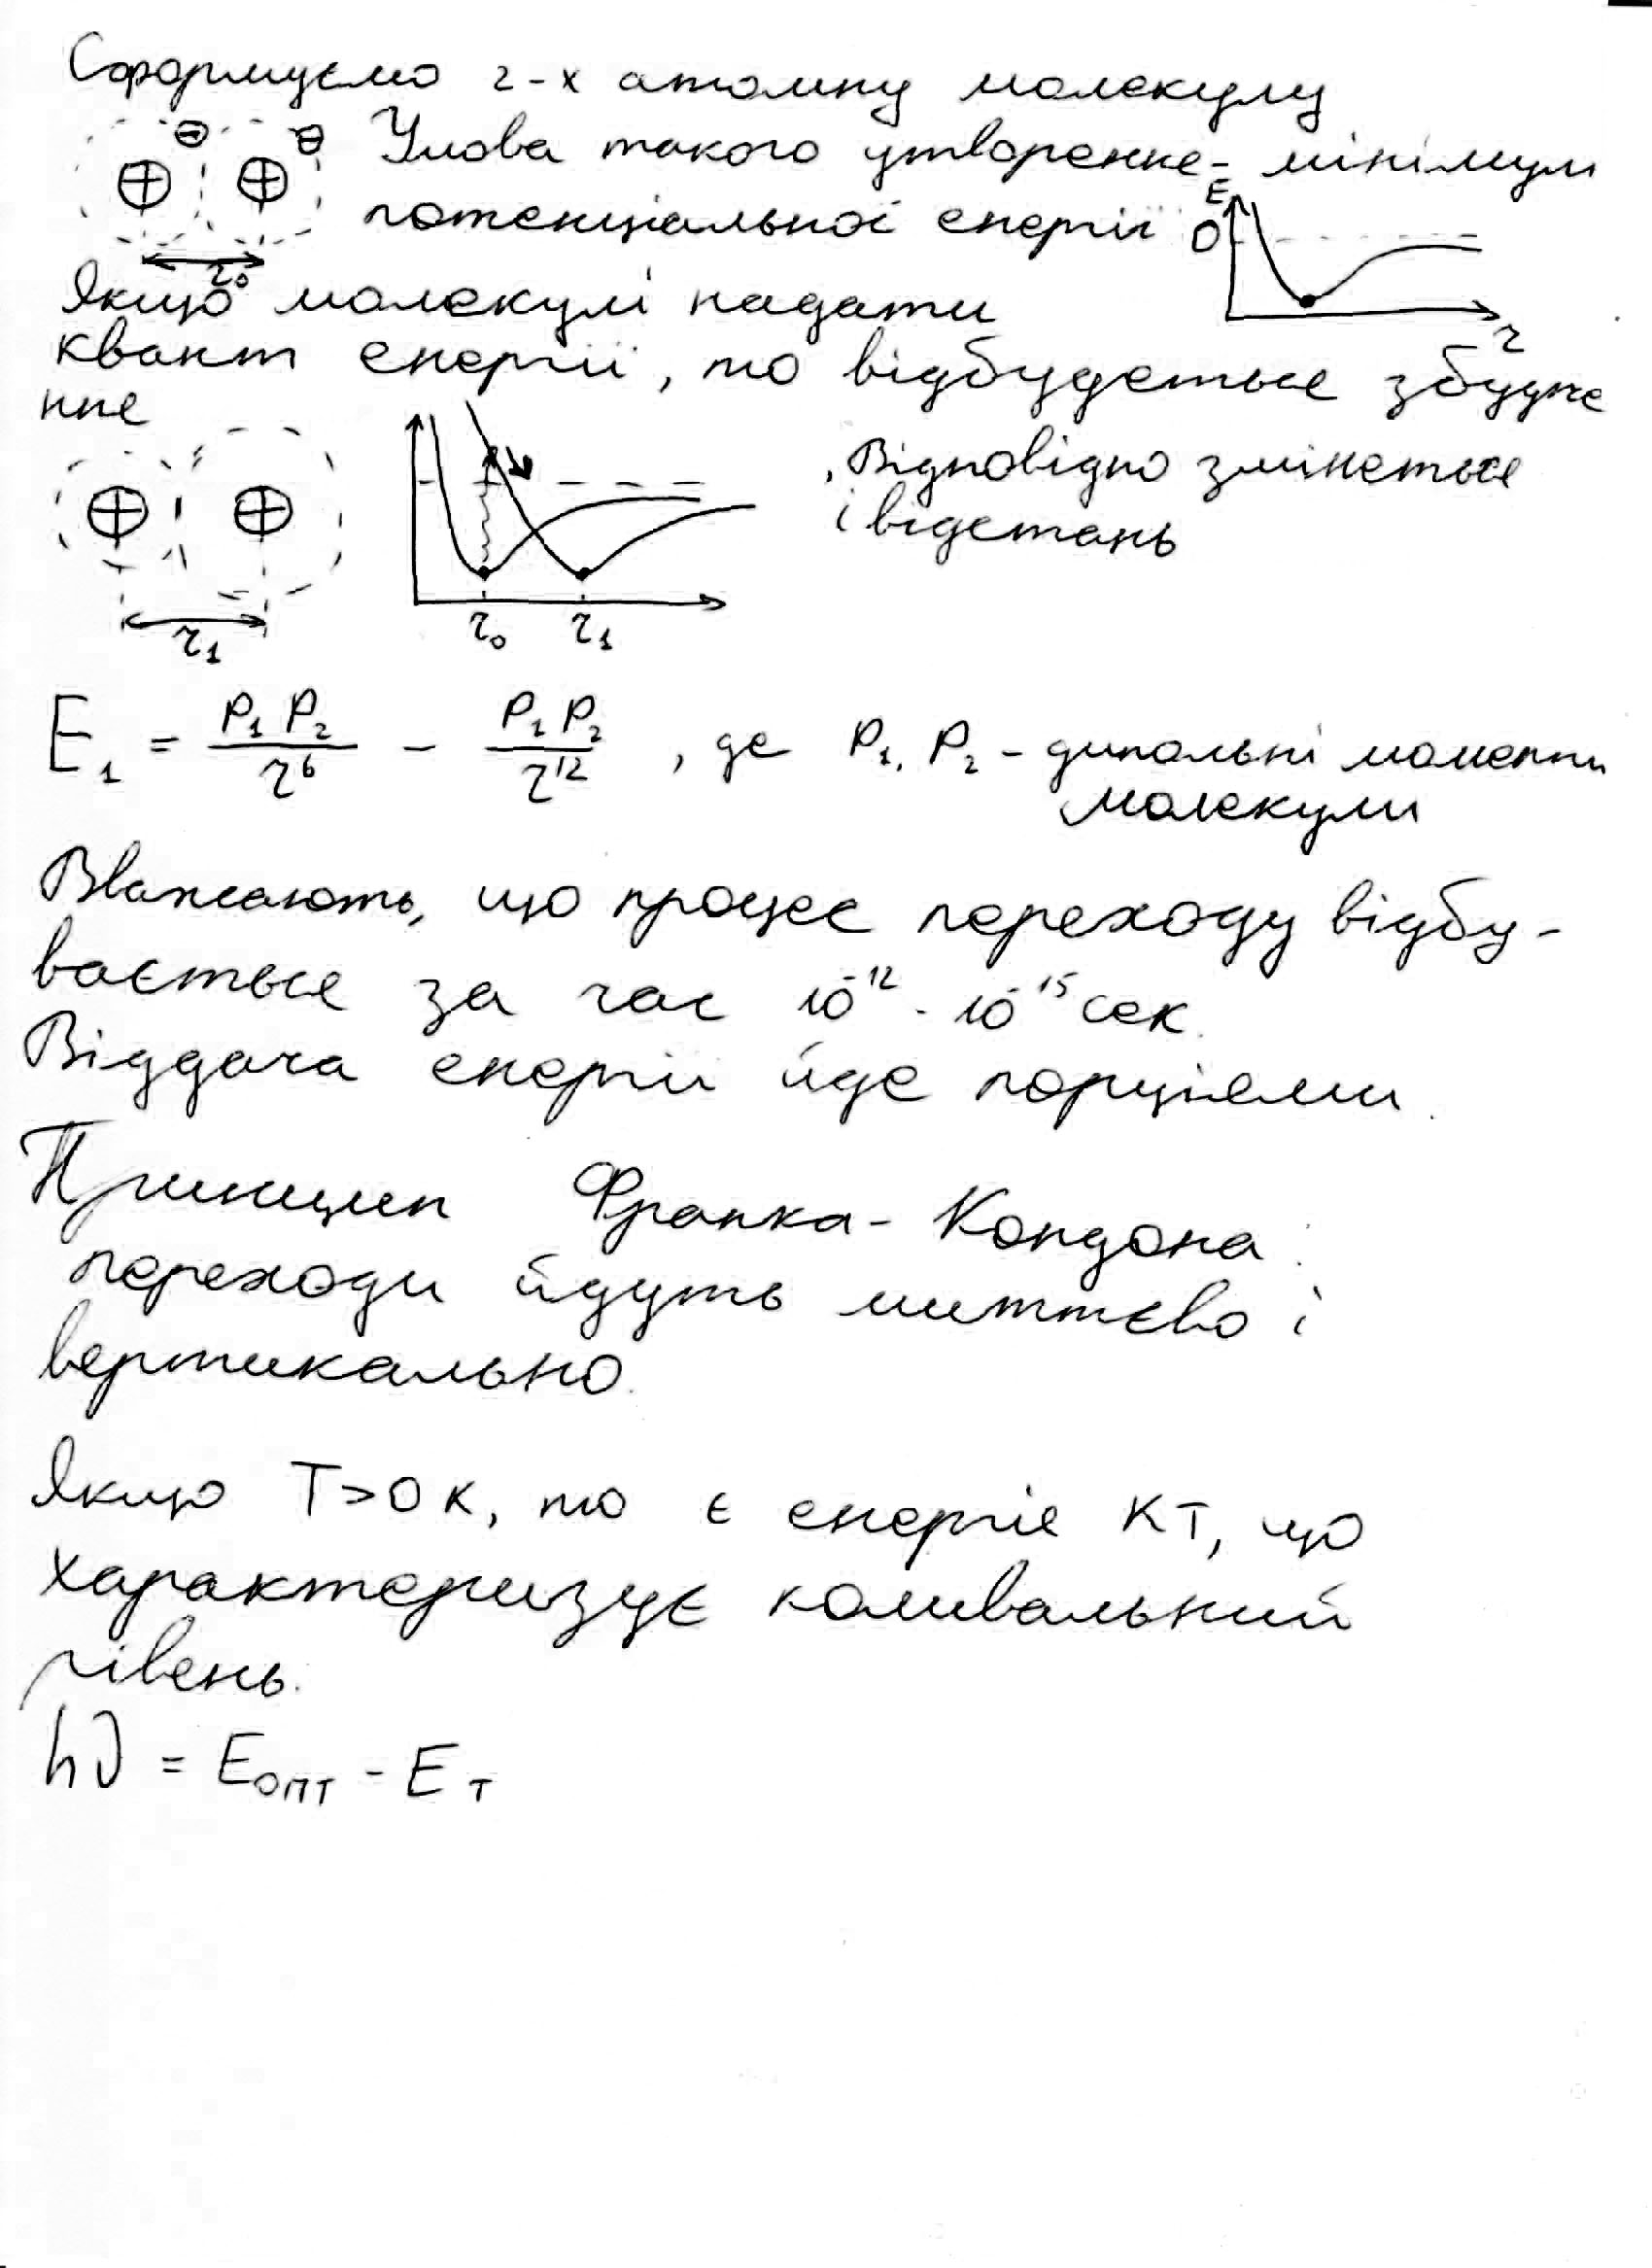 Сформуємо 2-х атомну молекулу
Умова такого утворення - мінімум
потенціальної енергії
E
0
r
r₀
Якщо молекулі надати
квант енергії, то відбудеться збудже
ння
. Відповідно зміниться
і відстань
r₁
r₀ r₁
E₁ = P₁ P₂ / r⁶ - P₁ P₂ / r¹², де P₁, P₂ - дипольні моменти
молекули
Вважають, що процес переходу відбу-
вається за час 10⁻¹² - 10⁻¹⁵ сек.
Віддача енергії йде порціями.
Принцип Франка-Кондона:
переходи йдуть миттєво і
вертикально.
Якщо T>0 К, то є енергія КТ, що
характеризує коливальний
рівень.
hν = Eопт - Eт